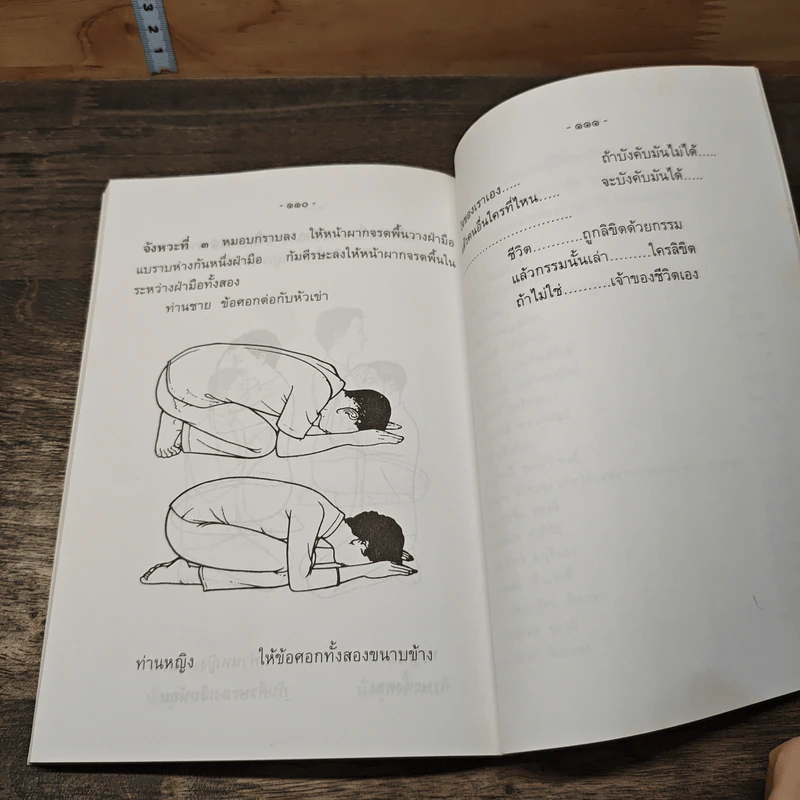 3
2
1
- ๑๑๐ -
จังหวะที่ ๓ หมอบกราบลง ให้หน้าผากจรดพื้นวางฝ่ามือ
แบราบห่างกันหนึ่งฝ่ามือ ก้มศีรษะลงให้หน้าผากจรดพื้นใน
ระหว่างฝ่ามือทั้งสอง
ท่านชาย ข้อศอกต่อกับหัวเข่า
ท่านหญิง ให้ข้อศอกทั้งสองขนาบข้าง
- ๑๑๑ -
ถ้าบังคับมันไม่ได้.....
ของเราเอง..... จะบังคับมันได้.....
คนอื่นใครที่ไหน.....
ชีวิต..........ถูกลิขิตด้วยกรรม
แล้วกรรมนั้นเล่า........ใครลิขิต
ถ้าไม่ใช่..........เจ้าของชีวิตเอง